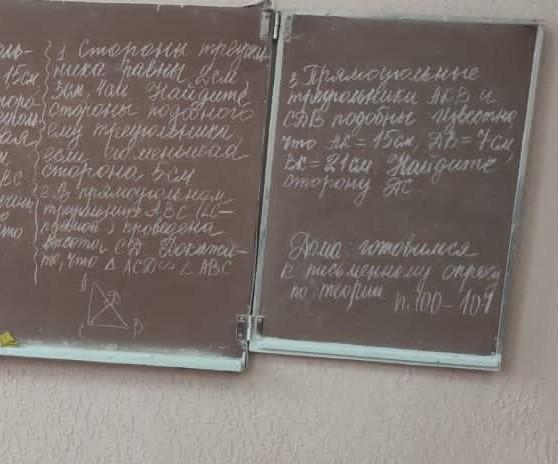 15см
ВС
1 Стороны треуголь-
ника равны 2см,
3см, 4см Найдите
стороны подобного
ему треугольника
если его меньшая
сторона 5см
2. В прямоугольном
треугольнике АВС (∠С-
прямой) проведена
высота СД Докажи-
те, что △ АСD ∾ △ АВС
3. Прямоугольные
треугольники АКВ и
СДВ подобны Известно
что АК = 15см, ДВ = 7см
ВК = 21см Найдите
сторону
Дома готовимся
к письменному опросу
по теории п. 100-107